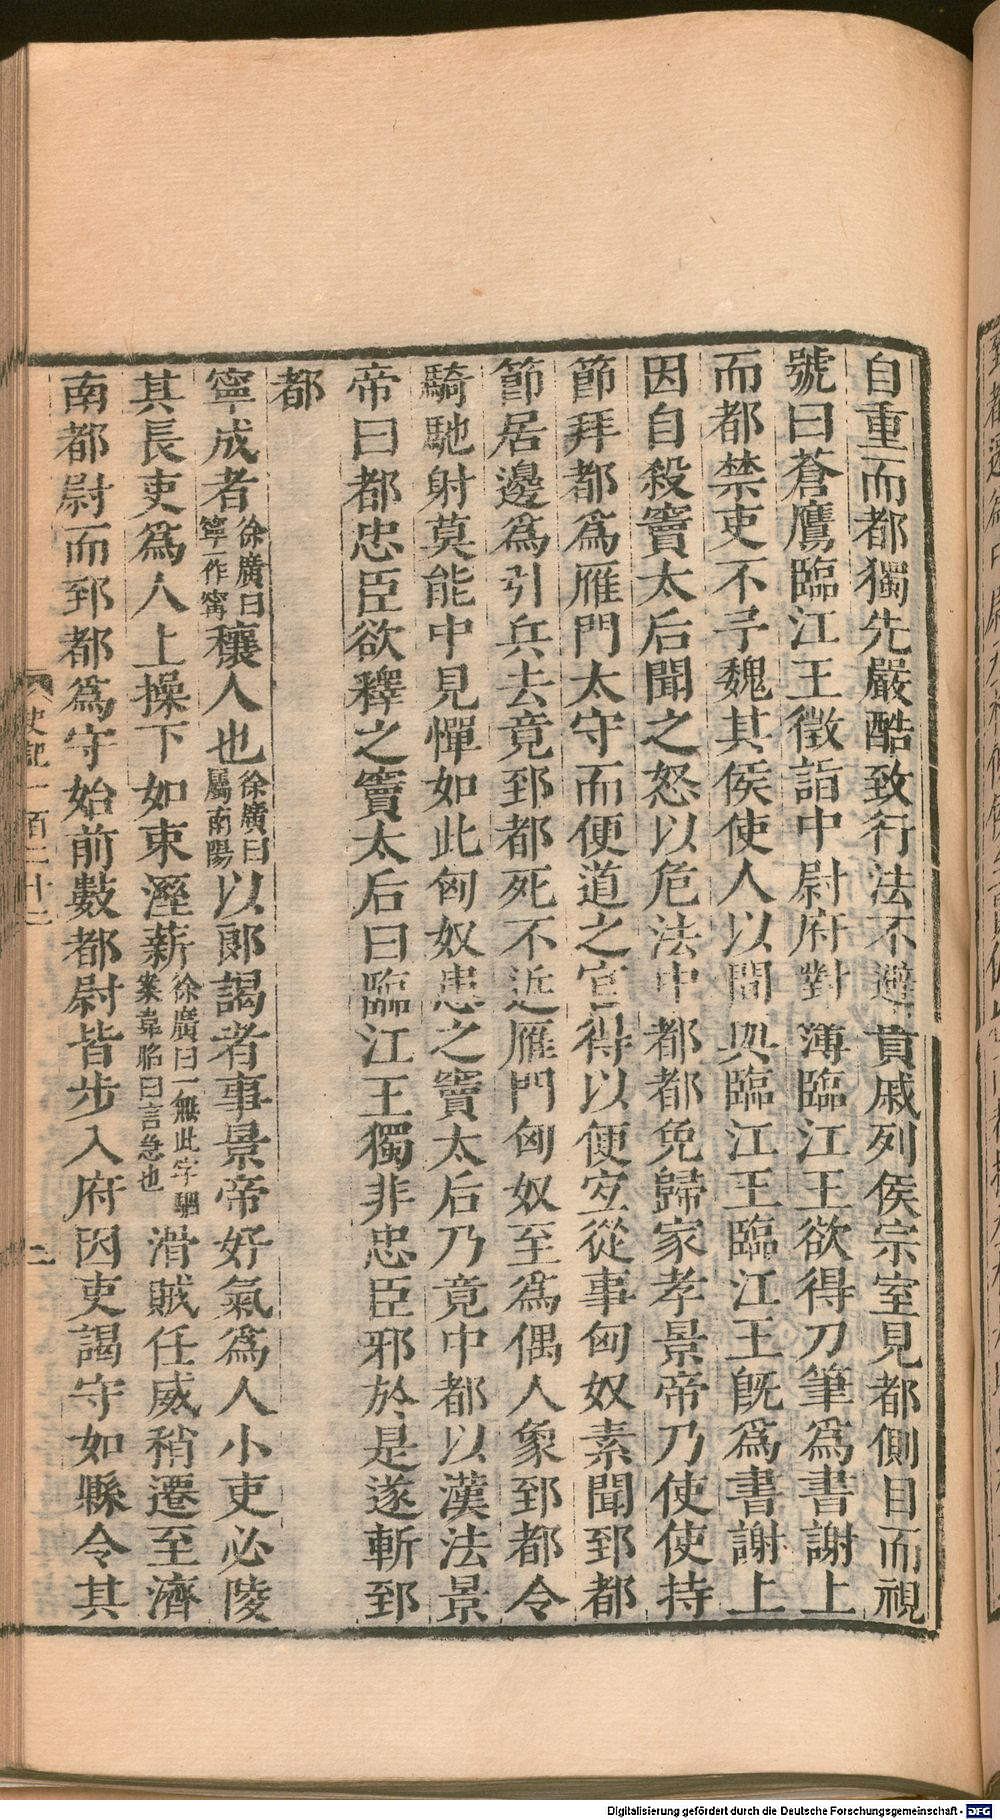 自重而都獨先嚴酷致行法不避貴戚列侯宗室見都側目而視
號曰蒼鷹臨江王徵詣中尉府對簿臨江王欲得刀筆爲書謝上
而都禁吏不予魏其侯使人以間與臨江王臨江王旣爲書謝上
因自殺竇太后聞之怒以危法中都都免歸家孝景帝乃使使持
節拜都爲雁門太守而便道之官得以便宜從事匈奴素聞郅都
節居邊爲引兵去竟郅都死不近雁門匈奴至爲偶人象郅都令
騎馳射莫能中見憚如此匈奴患之竇太后乃竟中都以漢法景
帝曰都忠臣欲釋之竇太后曰臨江王獨非忠臣邪於是遂斬郅
都
寧成者徐廣曰寧一作甯穰人也徐廣曰屬南陽以郎謁者事景帝好氣爲人小吏必陵
其長吏爲人上操下如束溼薪徐廣曰一無此字駰案韋昭曰言急也滑賊任威稍遷至濟
南都尉而郅都爲守始前數都尉皆步入府因吏謁守如縣令其
史記一百二十二
二
Digitalisierung gefördert durch die Deutsche Forschungsgemeinschaft - DFG